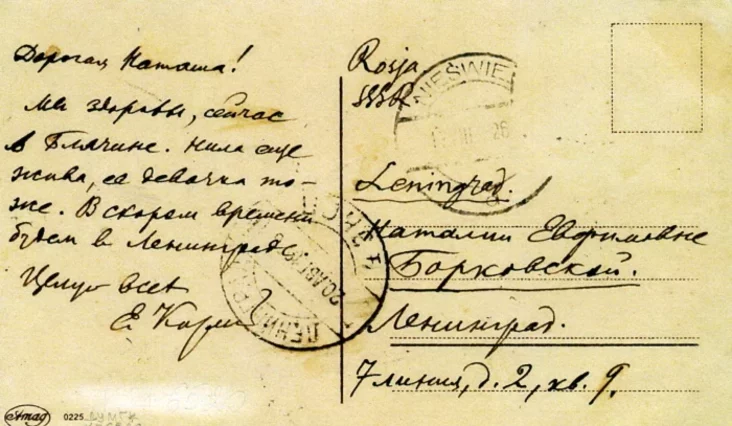 Дорогая Наташа!
Мы здоровы, сейчас
в Блячине. Нила еще
жива, ее девочка то-
же. В скором времени
будем в Ленинграде
Целую всех
Е.
Rosja
SSSR
NIEŚWIE
26
Leningrad.
Наталии Евфимовне
Борковской.
Ленинград.
7 линия, д. 2, кв. 9.
ЛЕНИНГРА
20.АВГ.
0225